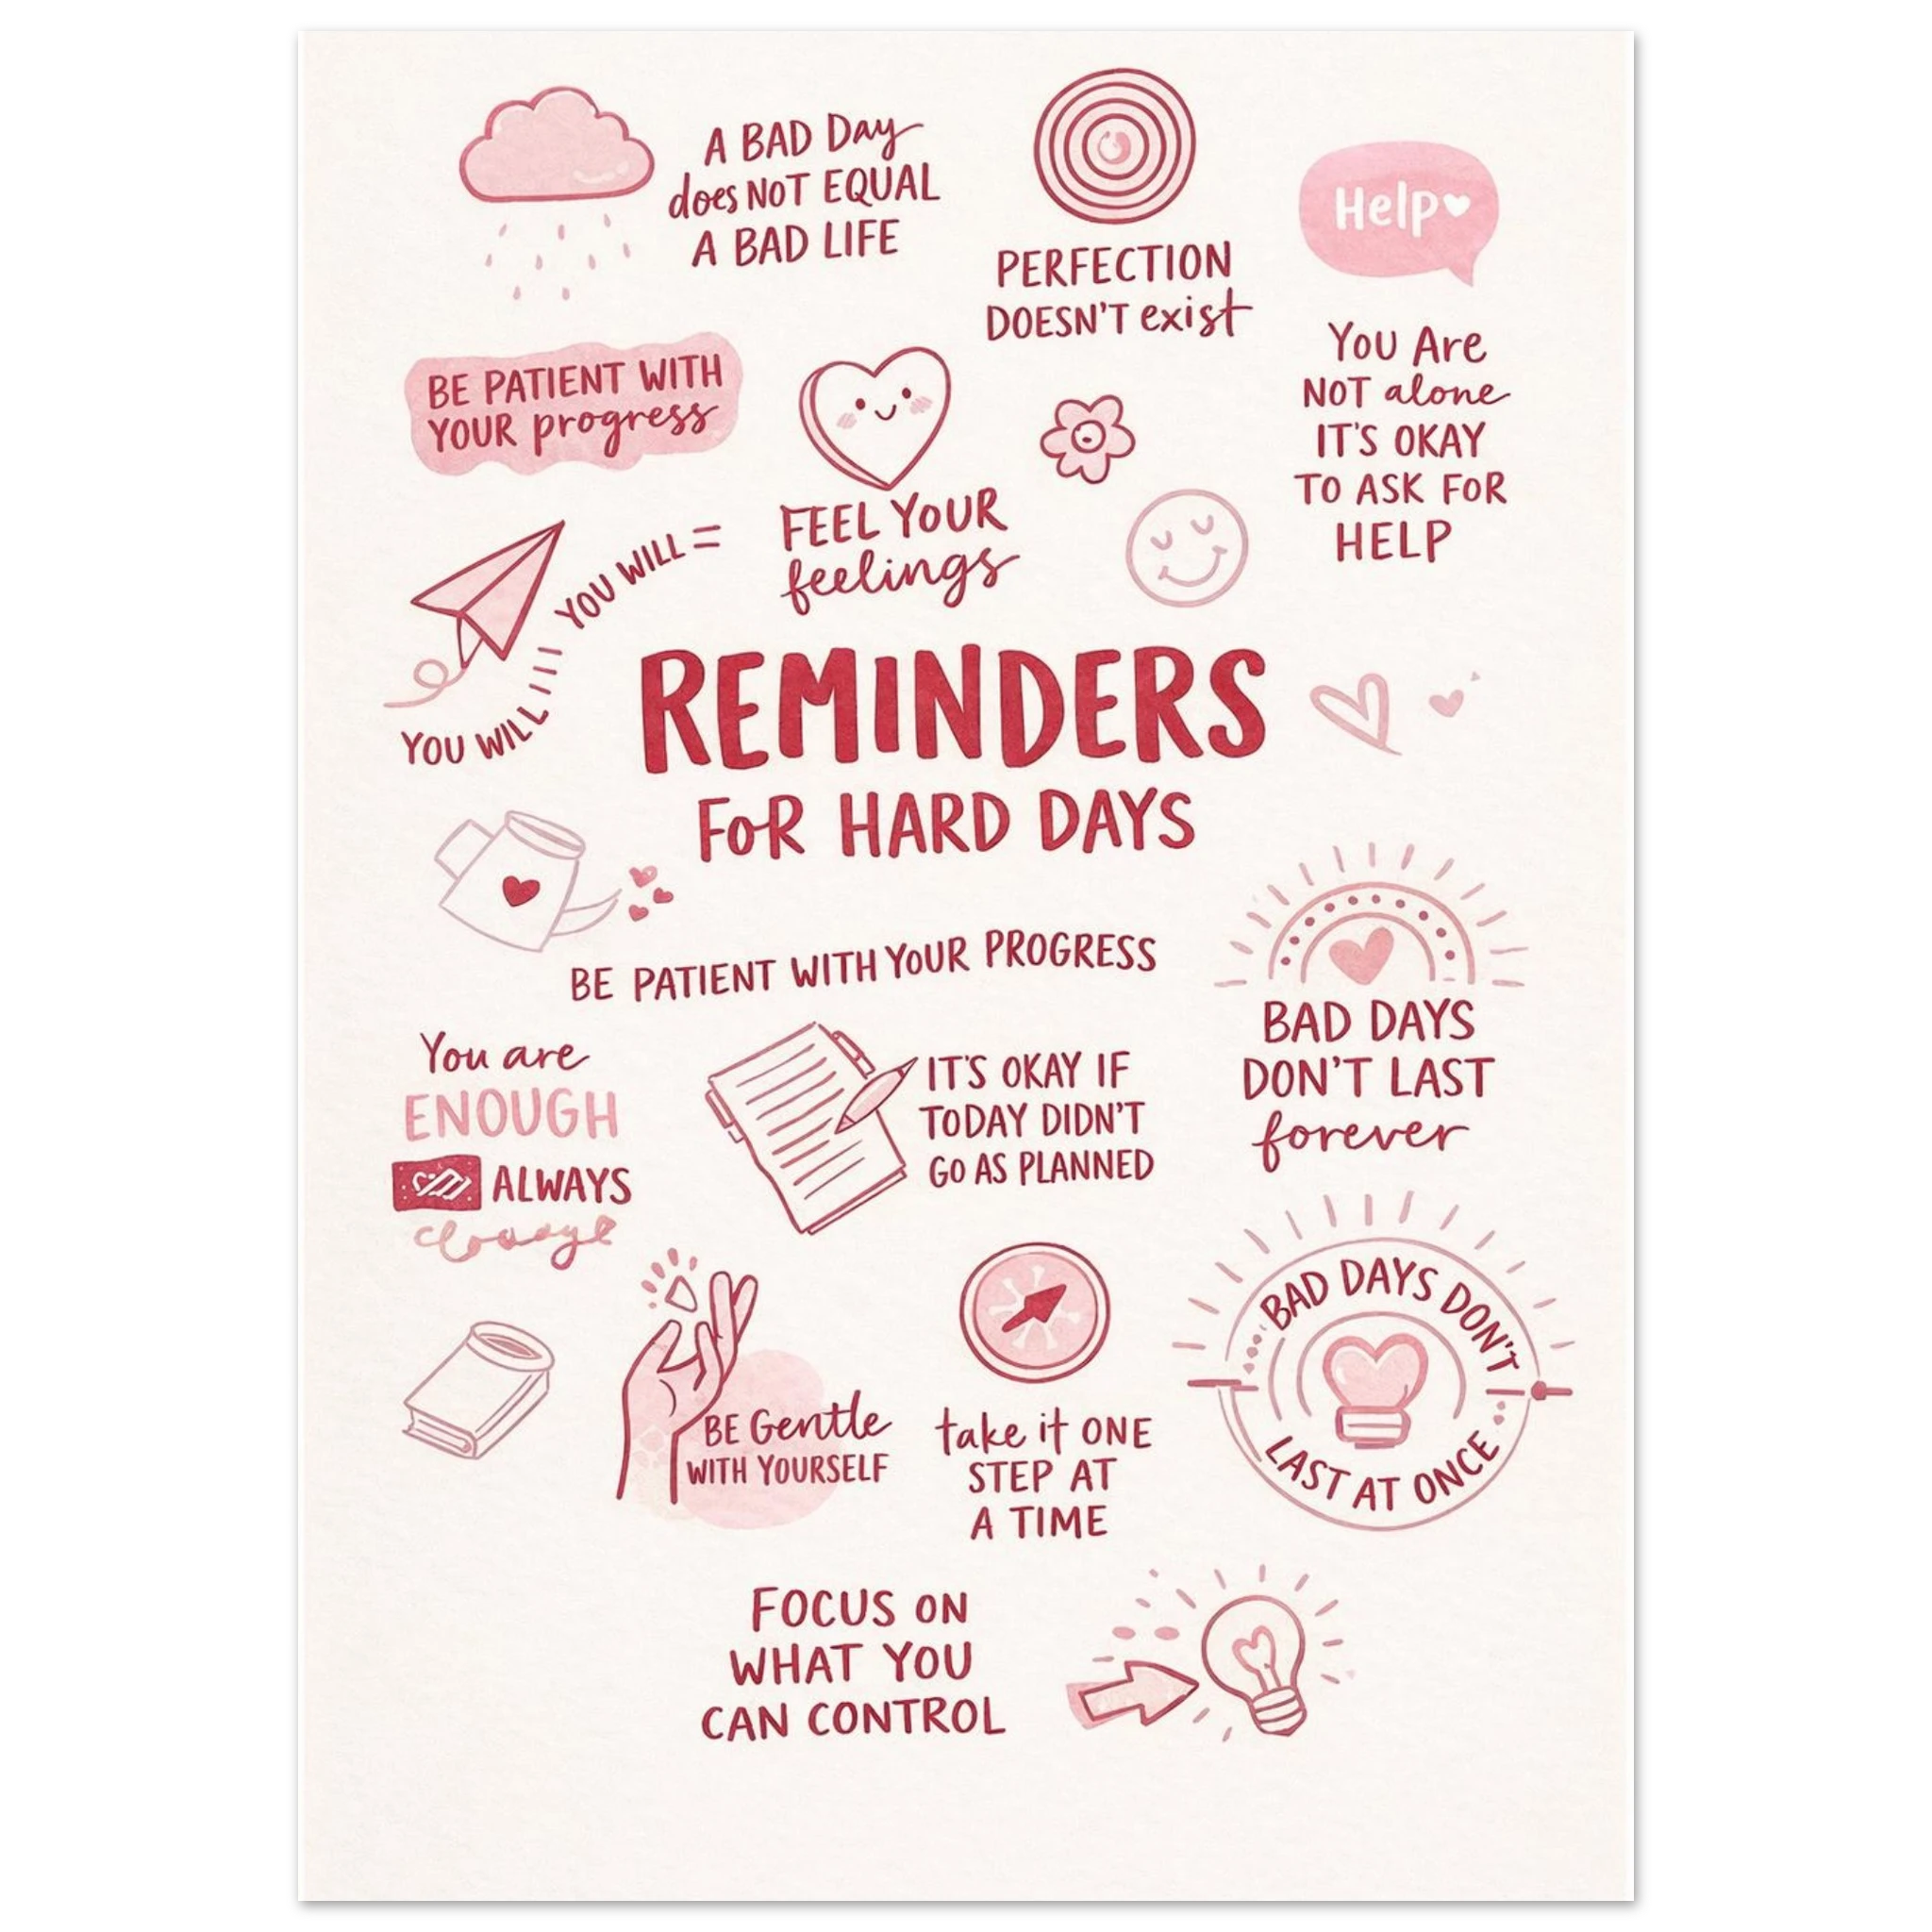 A BAD Day
does NOT EQUAL
A BAD LIFE
PERFECTION
DOESN'T exist
Help
YOU Are
NOT alone
IT'S OKAY
TO ASK FOR
HELP
BE PATIENT WITH
YOUR progress
FEEL YOUR
feelings
YOU WILL
YOU WILL =
REMINDERS
FOR HARD DAYS
BE PATIENT WITH YOUR PROGRESS
BAD DAYS
DON'T LAST
forever
You are
ENOUGH
ALWAYS
IT'S OKAY IF
TODAY DIDN'T
GO AS PLANNED
BE Gentle
WITH YOURSELF
take it ONE
STEP AT
A TIME
BAD DAYS DON'T
LAST AT ONCE
FOCUS ON
WHAT YOU
CAN CONTROL